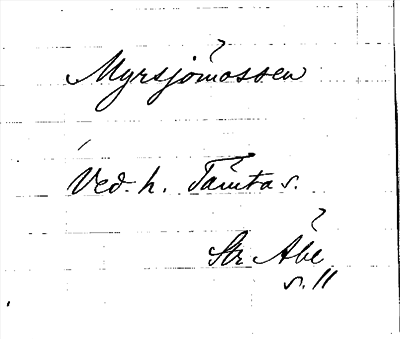 Myrsjömossen
Ved. h. Tämta s.
Str Åbe
s. 11